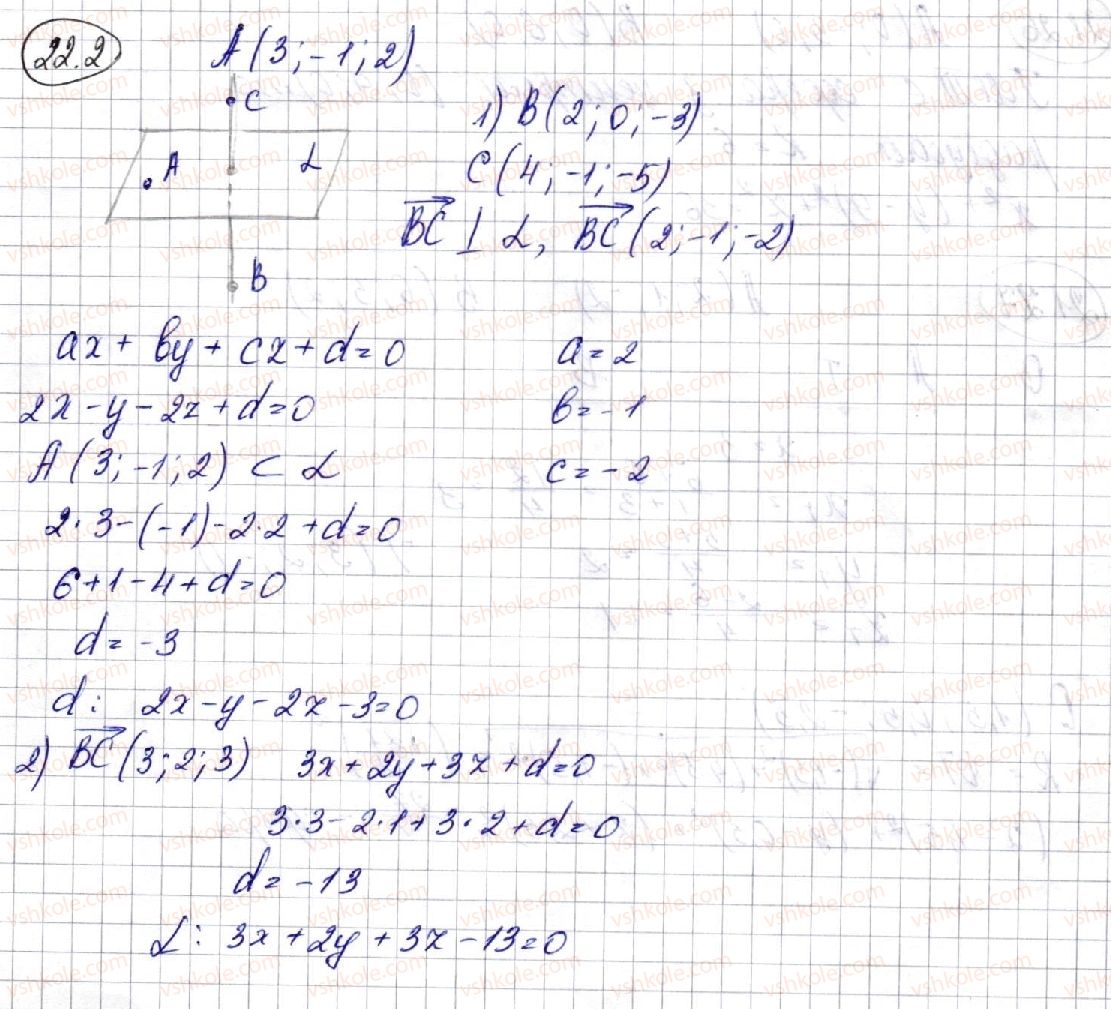 22.2
A (3; -1; 2)
C
A
α
B
1) B (2; 0; -3)
C (4; -1; -5)
BC ⊥ α, BC (2; -1; -2)
ax + by + cz + d = 0
a = 2
2x - y - 2z + d = 0
b = -1
A (3; -1; 2) ⊂ α
c = -2
2 · 3 - (-1) - 2 · 2 + d = 0
6 + 1 - 4 + d = 0
d = -3
d: 2x - y - 2z - 3 = 0
2) BC (3; 2; 3) 3x + 2y + 3z + d = 0
3 · 3 - 2 · 1 + 3 · 2 + d = 0
d = -13
α: 3x + 2y + 3z - 13 = 0
vshkole.com